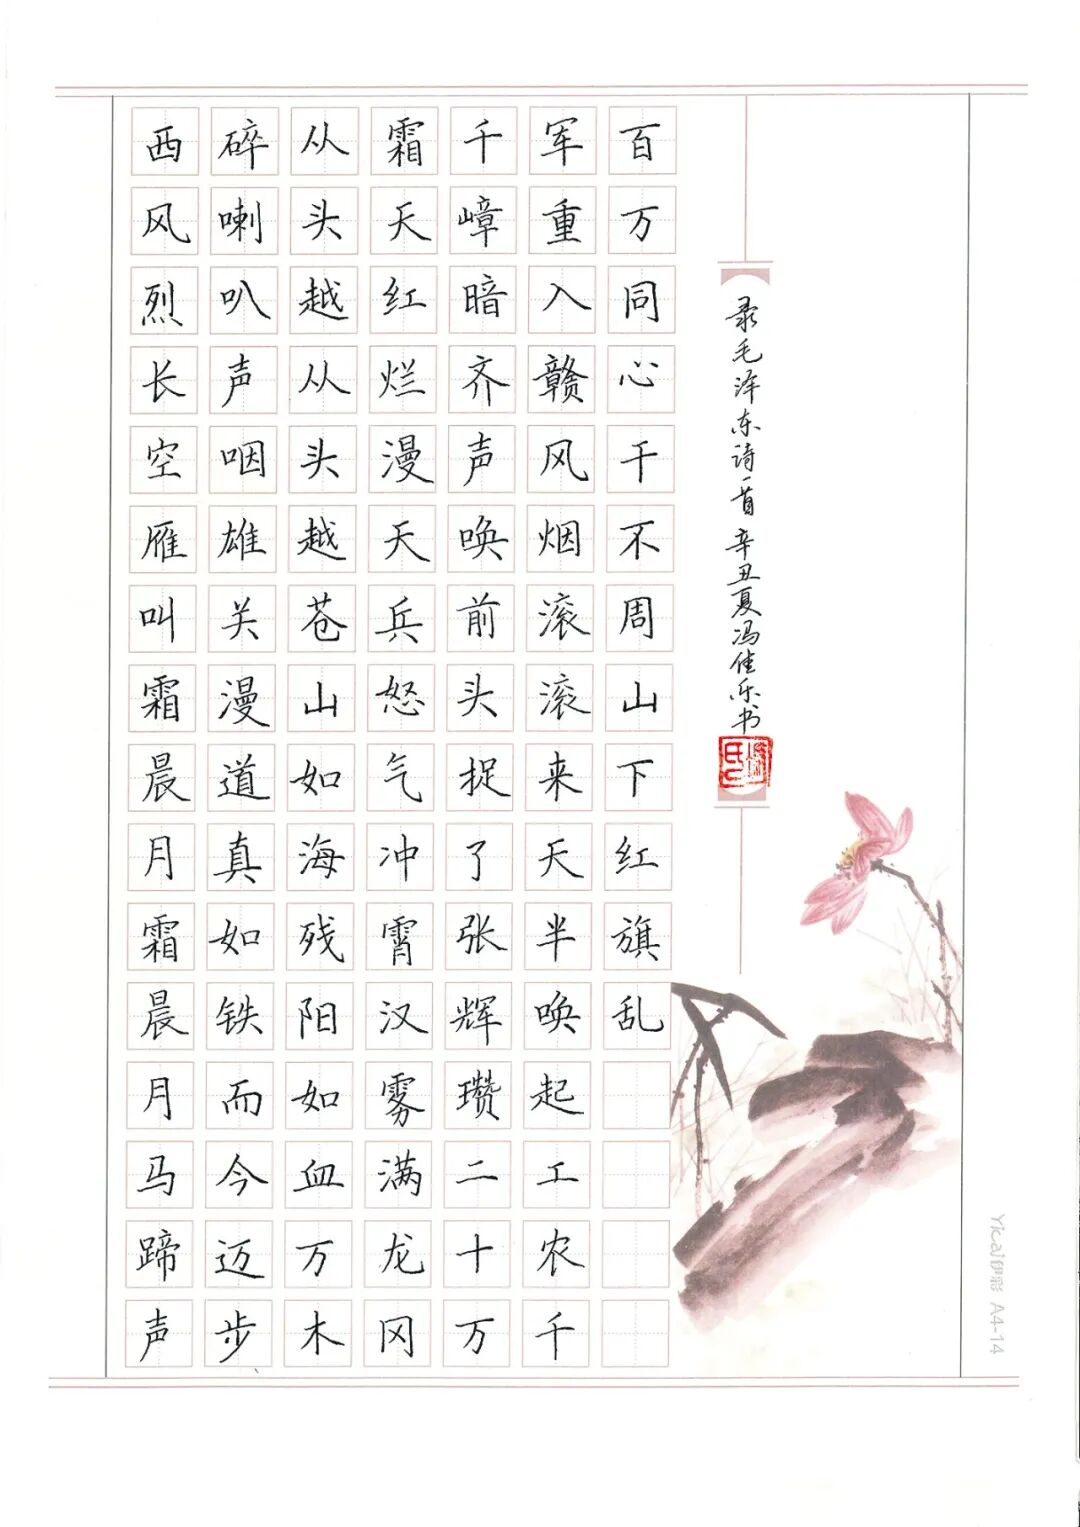 西风烈长空雁叫霜晨月霜晨月马蹄声
碎喇叭声咽雄关漫道真如铁而今迈步
从头越从头越苍山如海残阳如血万木
霜天红烂漫天兵怒气冲霄汉雾满龙冈
千嶂暗齐声唤前头捉了张辉瓒二十万
军重入赣风烟滚滚来天半唤起工农千
百万同心干不周山下红旗乱
录毛泽东诗一首 辛丑夏冯佳乐书
Yicai伊彩 A4-14